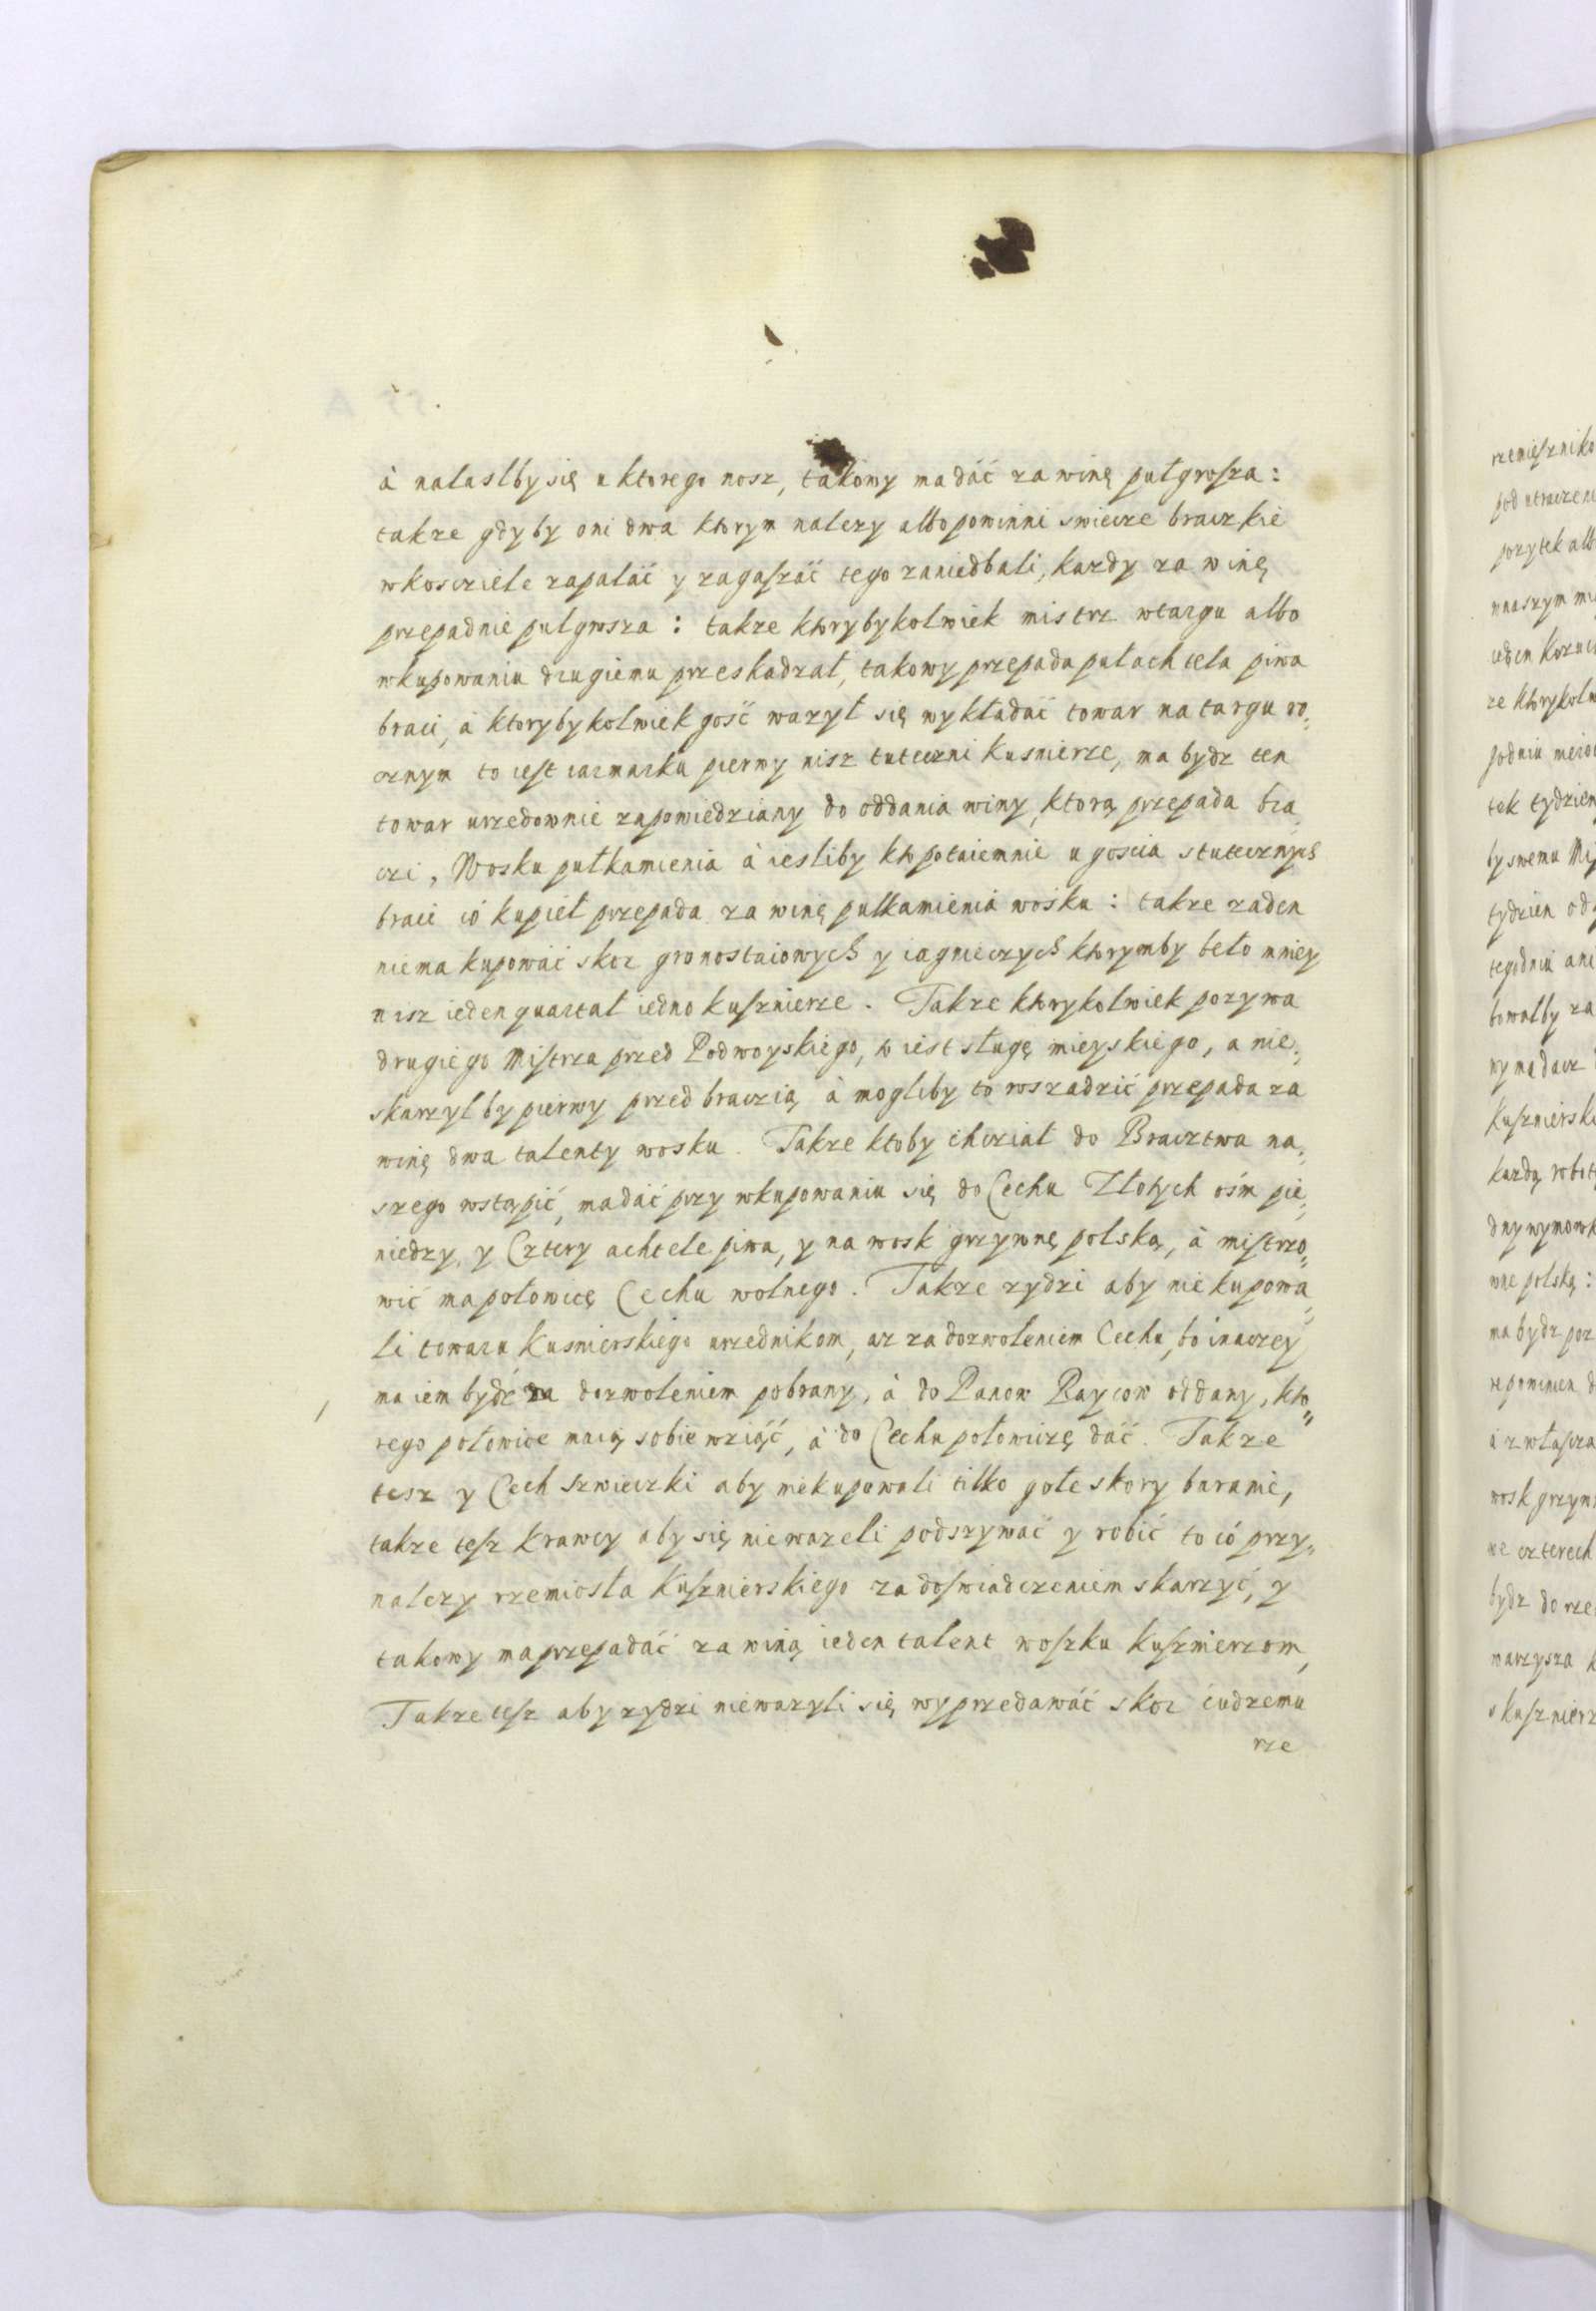 à nalaslby się u ktorego nosz, takowy ma dáć za winę pułgrosza:
takze gdyby oni dwa ktorym nalezy albo powinni swiecze braczkie
wkosciele zapalać y zagaszáć tego zaniedbali, kazdy za winę
przepadnie pułgrosza: takze ktorybykolwiek mistrz wtargu albo
wkupowaniu drugiemu przeskadzał, takowy przepada pułachtela piwa
braci, à ktorybykolwiek gość wazył się wykładać towar na targu ro,,
cznym to iest iarmarku pierwy nisz tuteczni kusnierze, ma bydz ten
towar urzedownie zapowiedziany do oddania winy, ktorą przepada bra,,
czi, Wosku pułkamienia à iesliby kto potaiemnie u goscia stutecznych
braci có kupieł przepada za winę pułkamienia wosku: takze zaden
niema kupowáć skor gronostaiowych y iagnieczych ktorymby beło mniey
nisz ieden quartał iedno kusznierze. Takze ktorykolwiek pozywa
drugiego Mistrza przed Podwoyskiego, to iest sługę mieyskiego, a nie,,
skarzylby pierwy przed braczią à mogliby to rosządzić przepada za
winę dwa talenty wosku. Takze ktoby chcział do Bracztwa na,,
szego wstąpić, ma dáć przy wkupowaniu się do Cechu Złotych ośm pie,,
niedzy, y Cztery achtele piwa, y na wosk grzywnę polską, à mistrzo,,
wić ma połowicę Cechu wolnego. Takze zydzi aby nie kupowa,,
li towaru kusnierskiego urzednikom, az za dozwoleniem Cechu, bo inaczey
ma iem bydź za dozwoleniem pobrany, à do Panow Raycow oddany, kto,,
rego połowice maią sobie wziąść, à do Cechu połowiczę dáć. Takze
tesz y Cech szwieczki aby niekupowali tilko gołe skory baranie,
takze tesz krawcy aby się niewazeli podszywać y robić to có przy,,
nalezy rzemiosła kusznierskiego za doswiadczeniem skarzyć, y
takowy ma przepadáć za winą ieden talent woszku kusznierzom,
Takze tesz aby zydzi niewazyli się wyprzedawáć skor cudzemu
rze